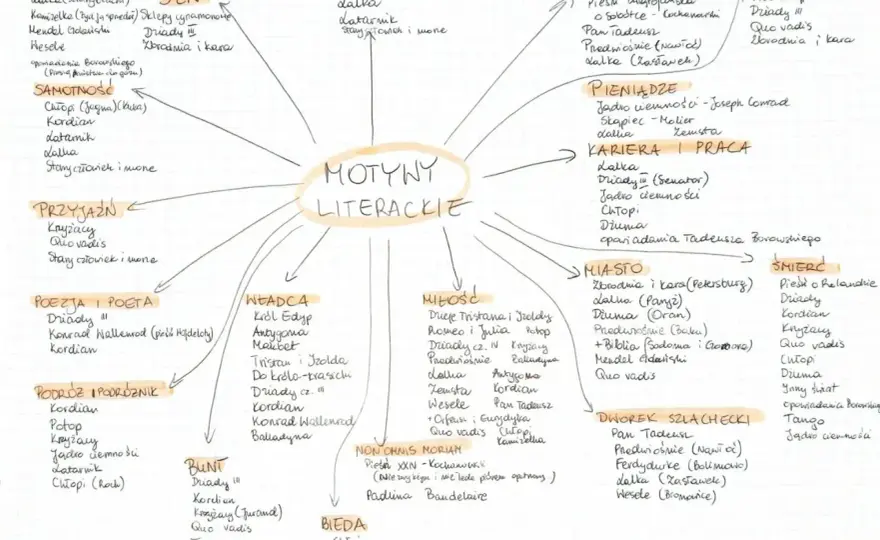 Kamizelka
Mendel Gdański
Wesele
opowiadania Borowskiego
SEN
Sklepy cynamonowe
Dziady III
Zbrodnia i kara
Lalka
Latarnik
Stary człowiek i morze
o Sobótce - Kochanowski
Pan Tadeusz
Przedwiośnie (Nawłoć)
Lalka (Zasławek)
Dziady III
Quo vadis
Zbrodnia i kara
SAMOTNOŚĆ
Chłopi (Jagna) (Kuba)
Kordian
Latarnik
Lalka
Stary człowiek i morze
PRZYJAŹŃ
Krzyżacy
Quo vadis
Stary człowiek i morze
POEZJA I POETA
Dziady III
Konrad Wallenrod (pieśń Wajdeloty)
Kordian
PODRÓŻ I PODRÓŻNIK
Kordian
Potop
Krzyżacy
Jądro ciemności
Latarnik
Chłopi (Roch)
MOTYWY
LITERACKIE
BUNT
Dziady III
Kordian
Krzyżacy (Jurand)
Quo vadis
WŁADCA
Król Edyp
Antygona
Makbet
Tristan i Izolda
Do króla - Krasicki
Dziady cz. III
Kordian
Konrad Wallenrod
Balladyna
BIEDA
NON OMNIS MORIAR
Pieśń XXIV - Kochanowski
(Niezwykłym i nie leda piórem opatrzony)
Padlina Baudelaire
MIŁOŚĆ
Dzieje Tristana i Izoldy
Romeo i Julia Potop
Dziady cz. IV Krzyżacy
Przedwiośnie Balladyna
Lalka Antygona
Zemsta Kordian
Wesele Pan Tadeusz
+ Orfeusz i Eurydyka
Quo vadis Chłopi
Kamizelka
PIENIĄDZE
Jądro ciemności - Joseph Conrad
Skąpiec - Molier
Lalka Zemsta
KARIERA I PRACA
Lalka
Dziady III (Senator)
Jądro ciemności
Chłopi
Dżuma
opowiadania Tadeusza Borowskiego
MIASTO
Zbrodnia i kara (Petersburg)
Lalka (Paryż)
Dżuma (Oran)
Przedwiośnie (Baku)
+ Biblia (Sodoma i Gomora)
Mendel Gdański
Quo vadis
DWOREK SZLACHECKI
Pan Tadeusz
Przedwiośnie (Nawłoć)
Ferdydurke (Bolimowo)
Lalka (Zasławek)
Wesele (Bronowice)
ŚMIERĆ
Pieśń o Rolandzie
Dziady
Kordian
Krzyżacy
Quo vadis
Chłopi
Dżuma
Inny świat
opowiadania Borowskiego
Tango
Jądro ciemności